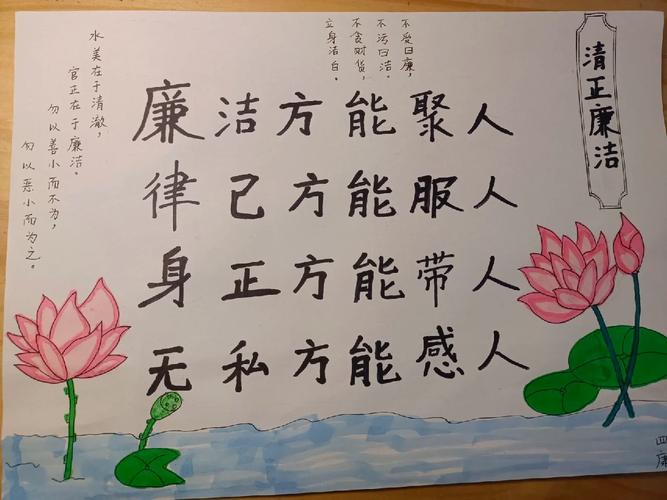 清正廉洁
不受曰廉，
不污曰洁。
不贪财货，
立身洁白。
廉洁方能聚人
律己方能服人
身正方能带人
无私方能感人
水美在于清澈，
官正在于廉洁。
勿以善小而不为，
勿以恶小而为之。